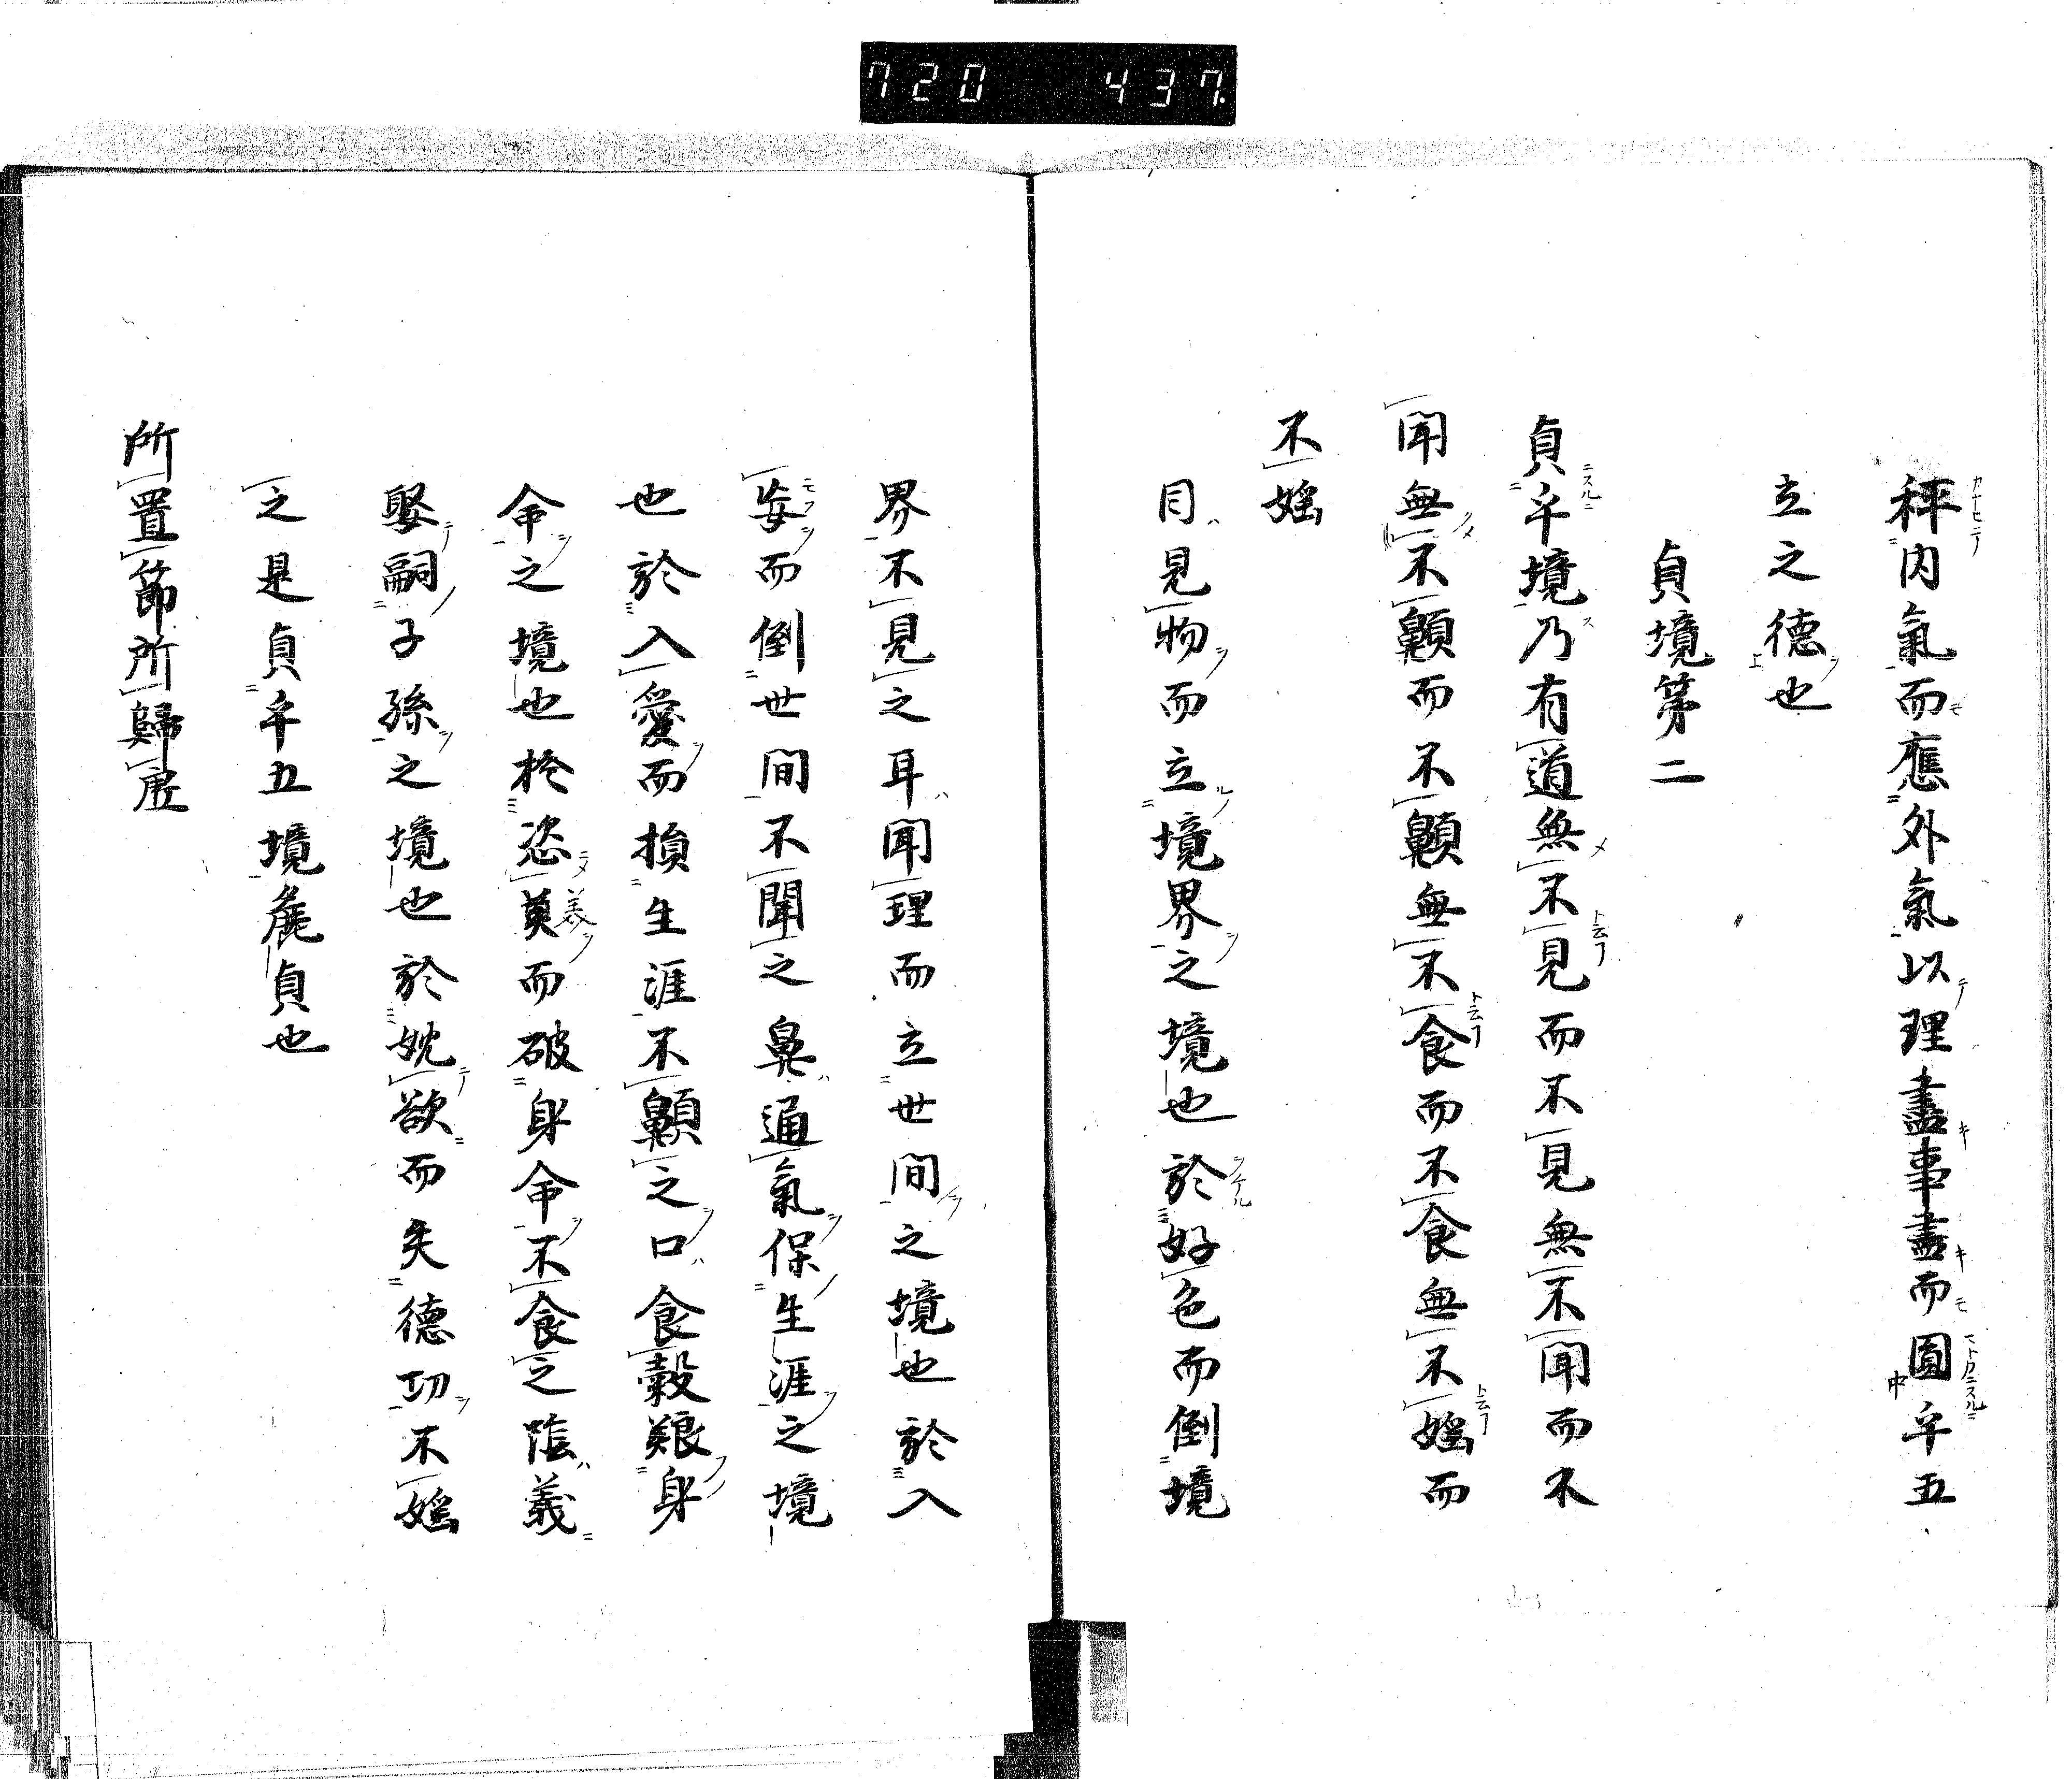 720 437.
秤内氣而應外氣以理盡事盡而圓乎五
立之德也
貞境第二
貞乎境乃有道無不見而不見無不聞而不
聞無不顯而不顯無不食而不食無不婬而
不婬
目見物而立境界之境也於好色而倒境
界不見之耳聞理而立世間之境也於入
妄而倒世間不聞之鼻通氣保生涯之境
也於入愛而損生涯不顯之口食穀艱身
命之境也於恣美而破身命不食之陰義
娶嗣子孫之境也於妉欲而失德功不婬
之是貞乎五境貞也
所置節所歸